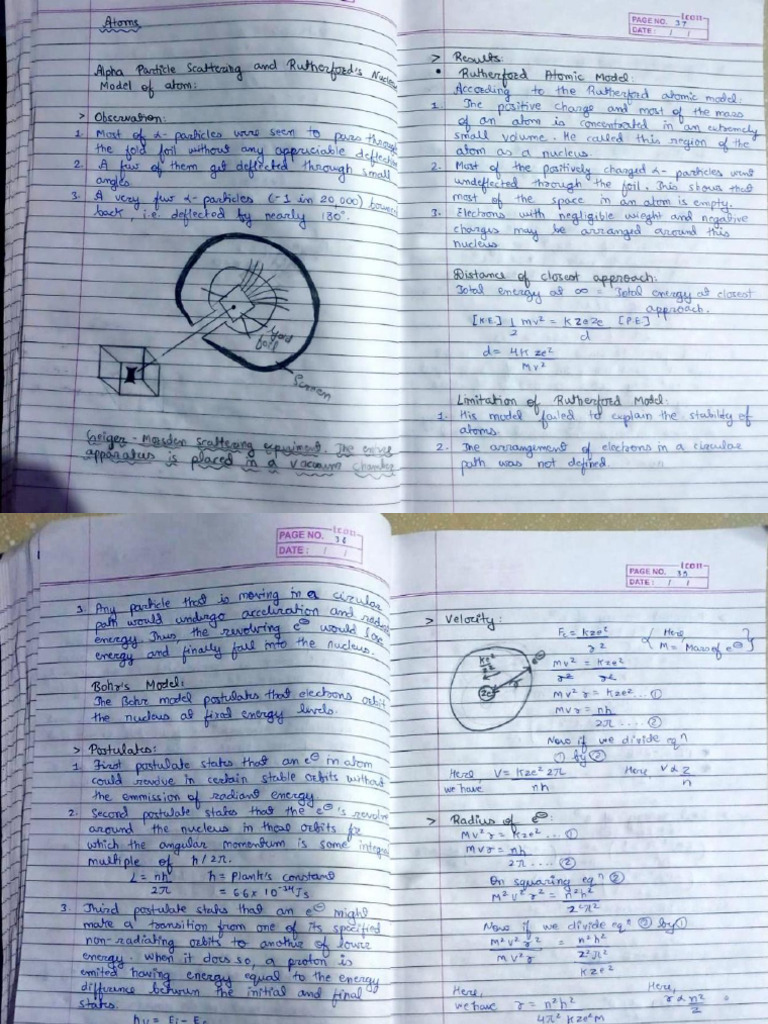 Atoms
Alpha Particle Scattering and Rutherford's Nuclear
Model of atom:
> Observation:
1. Most of α- particles were seen to pass through
the fold foil without any appriciable deflection
2. A few of them get deflected through small
angles
3. A very few α- particles (~1 in 20,000) bounced
back, i.e. deflected by nearly 180°.
Gold
foil
Screen
Geiger - Marsden scattering experiment. The entire
apparatus is placed in a vacuum chamber
icon
PAGE NO. 37
DATE: / /
> Results:
• Rutherford Atomic Model:
According to the Rutherford atomic model:
1. The positive charge and most of the mass
of an atom is concentrated in an extremely
small volume. He called this region of the
atom as a nucleus.
2. Most of the positively charged α- particles went
undeflected through the foil. This shows that
most of the space in an atom is empty.
3. Electrons with negligible weight and negative
charges may be arranged around this
nucleus
Distance of closest approach:
Total energy at ∞ = Total energy at closest
approach.
[K.E] 1/2 mv² = KZe2e/d [P.E]
d = 4KZe²/Mv²
Limitation of Rutherford Model:
1. His model failed to explain the stability of
atoms.
2. The arrangement of electrons in a circular
path was not defined.
icon
PAGE NO. 38
DATE: / /
3. Any particle that is moving in a circular
path would undergo acceleration and
energy. Thus, the revolving e⊖ would lose
energy and finally fall into the nucleus.
Bohr's Model:
The Bohr model postulates that electrons orbit
the nucleus at fixed energy levels.
> Postulates:
1. First postulate states that an e⊖ in atom
could revolve in certain stable orbits without
the emmission of radiant energy.
2. Second postulate states that the e⊖'s revolve
around the nucleus in those orbits for
which the angular momentum is some integral
multiple of h/2π.
L = nh/2π h = Plank's constant
= 6.6 x 10⁻³⁴ Js
3. Third postulate states that an e⊖ might
make a transition from one of its specified
non-radiating orbits to another of lower
energy. When it does so, a proton is
emited having energy equal to the energy
difference between the initial and final
states.
icon
PAGE NO. 39
DATE: / /
> Velocity:
e⊖
Ze
r
Fc = KZe²/r² { Here
M = Mass of e⊖ }
Mv²/r = KZe²/r²
Mv²r = KZe² ... ①
Mvr = nh/2π .... ②
Now if we divide eqⁿ
① by ②
Here, V = KZe² 2π/nh Here V ∝ Z/n
we have
> Radius of e⊖:
Mv²r = KZe² ... ①
Mvr = nh/2π .... ②
On squaring eqⁿ ②
M²v²r² = n²h²/2²π²
Now if we divide eqⁿ ② by ①
M²v²r²/Mv²r = n²h²/2²π²/KZe²
Here, Here,
we have r = n²h²/4π²KZe²M r ∝ n²/Z